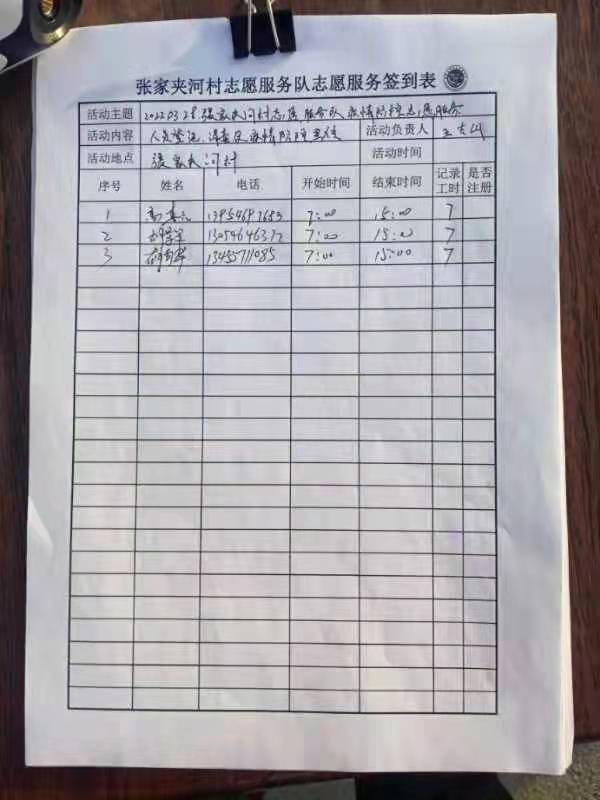 张家夹河村志愿服务队志愿服务签到表
活动主题 2022.03.28.张家夹河村志愿服务队疫情防控志愿服务
活动内容 人员登记、消毒及疫情防控 活动负责人
活动地点 张家夹河村 活动时间
序号 姓名 电话 开始时间 结束时间 记录工时 是否注册
1 7:00 15:00 7
2 13054646372 7:00 15:00 7
3 13455711085 7:00 15:00 7